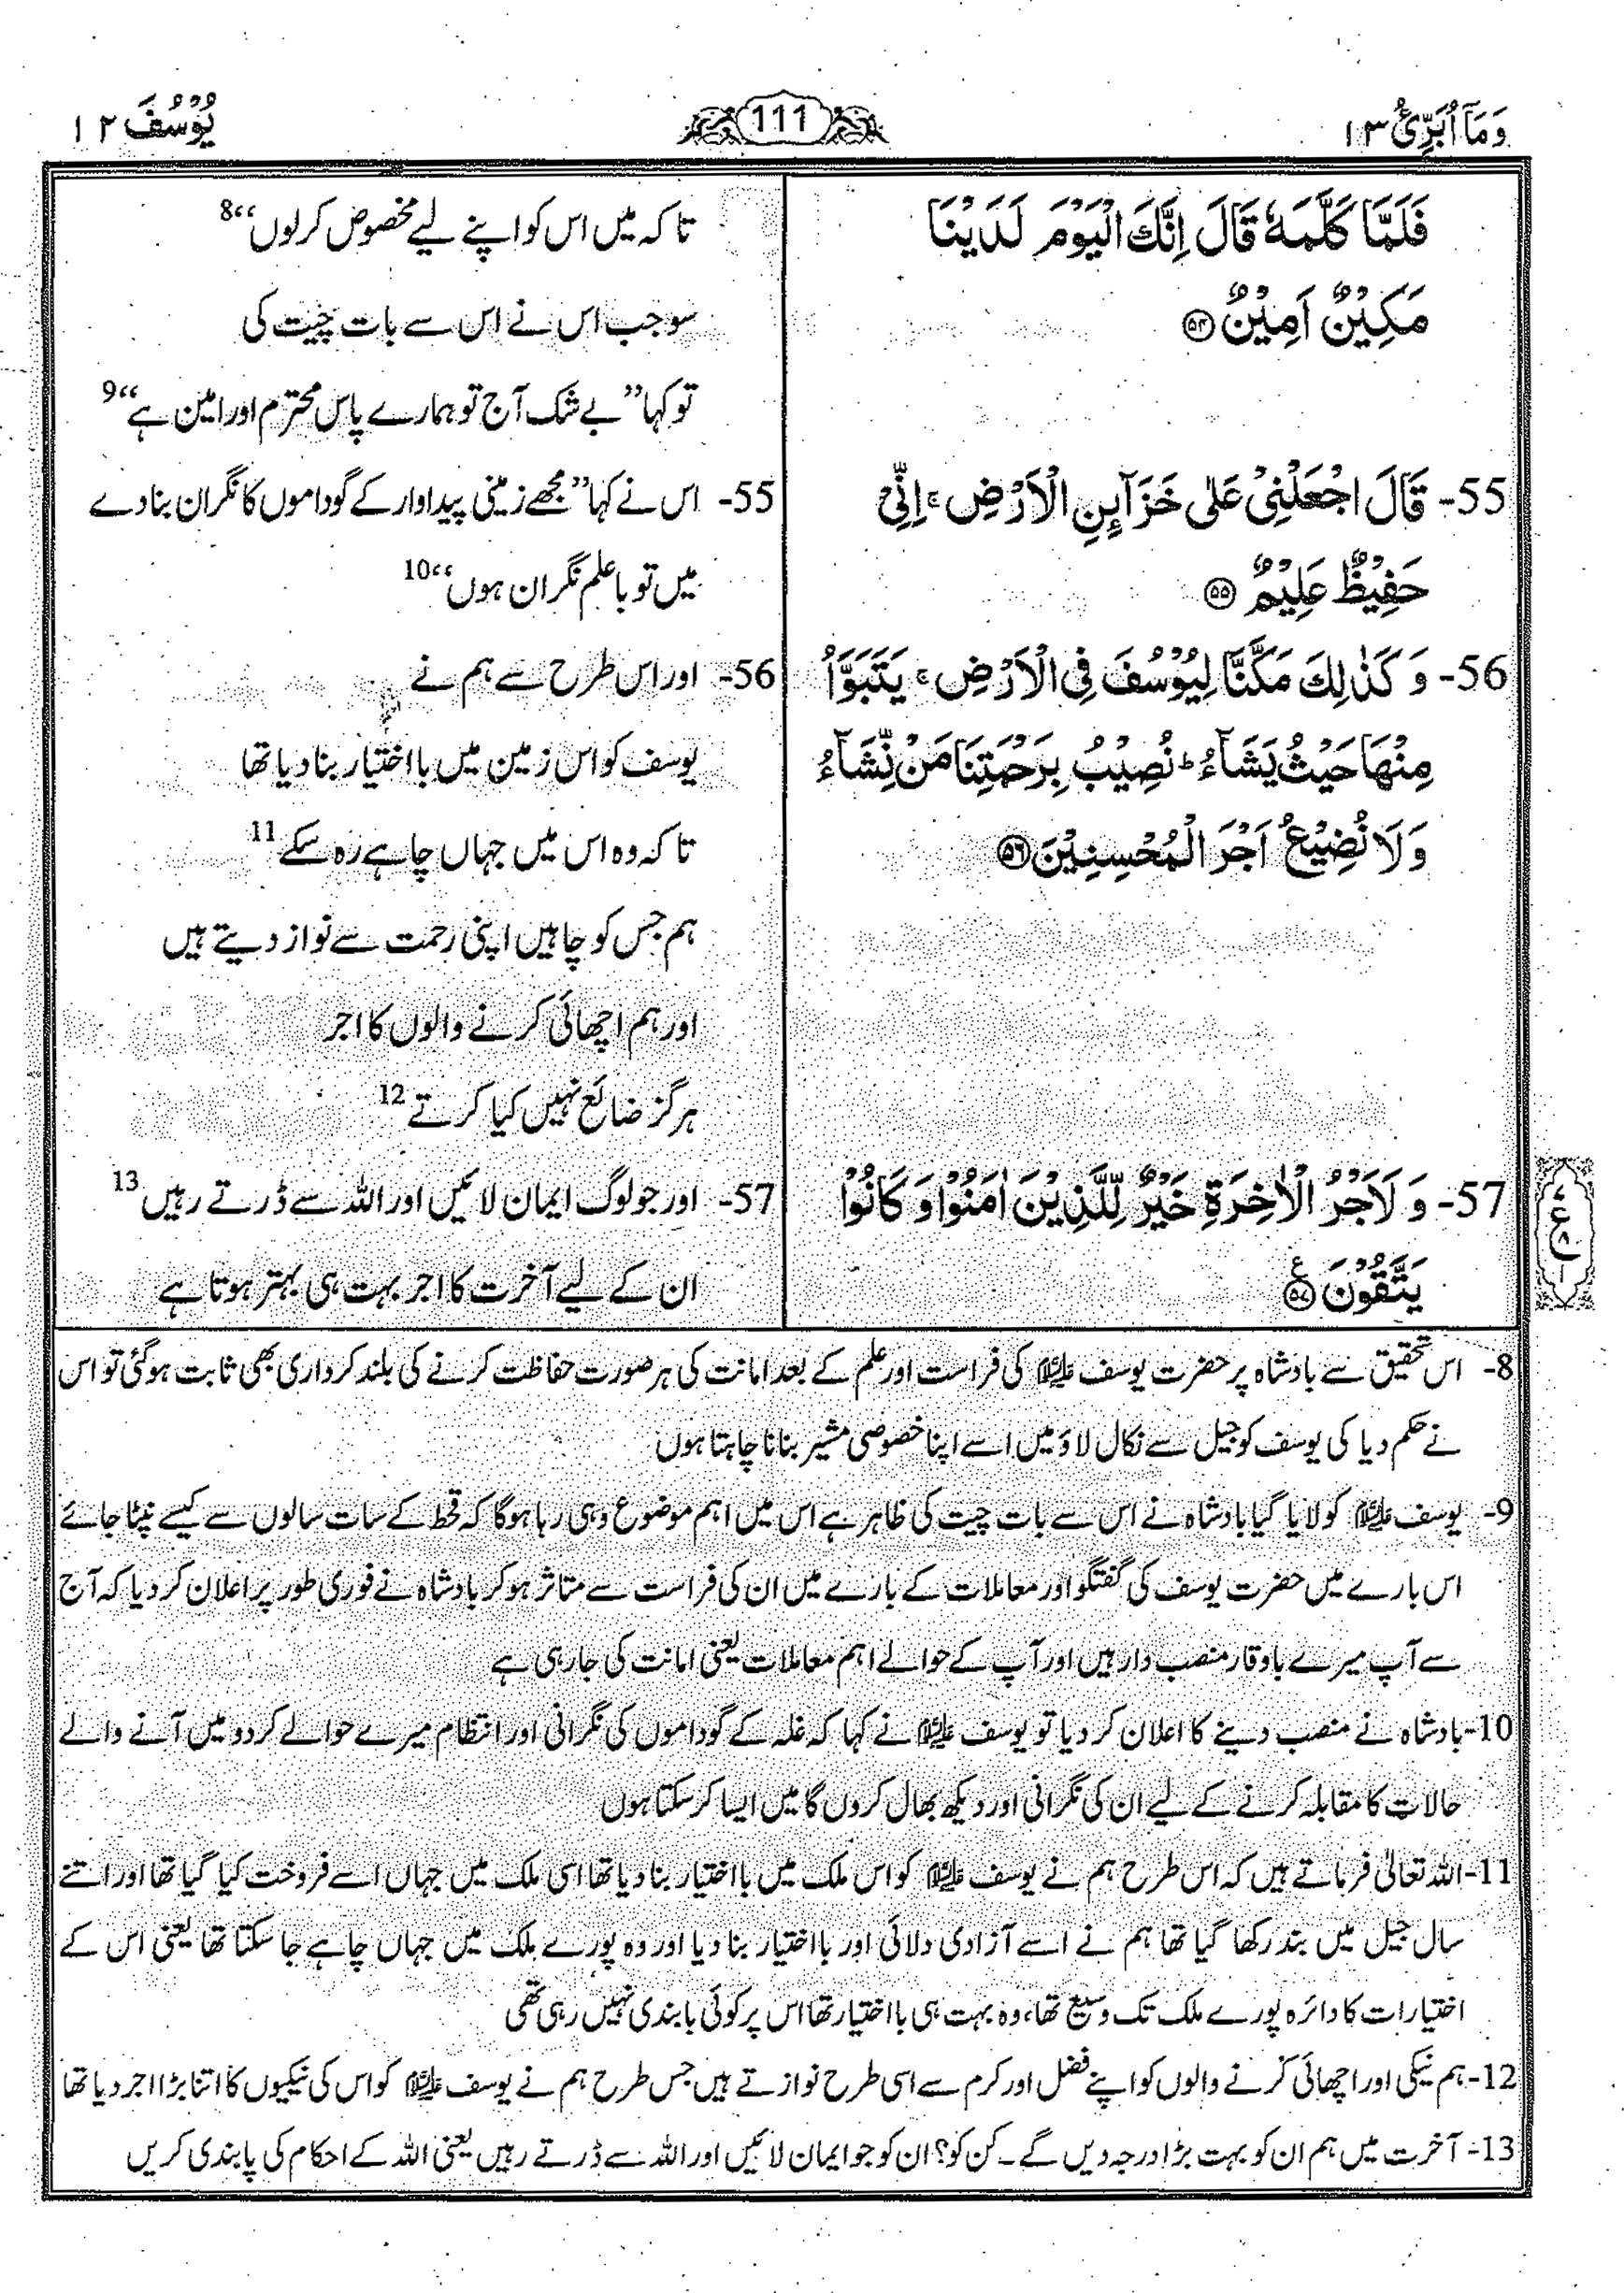 وَمَاۤ اُبَرِّئُ ۱۳
111
یُوْسُف ۱۲
فَلَمَّا كَلَّمَهٗ قَالَ اِنَّكَ الْیَوْمَ لَدَیْنَا
مَكِیْنٌ اَمِیْنٌ ﴿۵۴﴾
55- قَالَ اجْعَلْنِیْ عَلٰی خَزَآىِٕنِ الْاَرْضِ ۚ اِنِّیْ
حَفِیْظٌ عَلِیْمٌ ﴿۵۵﴾
56- وَ كَذٰلِكَ مَكَّنَّا لِیُوْسُفَ فِی الْاَرْضِ ۚ یَتَبَوَّاُ
مِنْهَا حَیْثُ یَشَآءُ ؕ نُصِیْبُ بِرَحْمَتِنَا مَنْ نَّشَآءُ
وَلَا نُضِیْعُ اَجْرَ الْمُحْسِنِیْنَ ﴿۵۶﴾
57- وَ لَاَجْرُ الْاٰخِرَةِ خَیْرٌ لِّلَّذِیْنَ اٰمَنُوْا وَ كَانُوْا
یَتَّقُوْنَ ﴿۵۷﴾ ع
تاکہ میں اس کو اپنے لیے مخصوص کرلوں‘‘8
سو جب اس نے اس سے بات چیت کی
تو کہا’’بے شک آج تو ہمارے پاس محترم اور امین ہے‘‘9
55- اس نے کہا’’مجھے زمینی پیداوار کے گوداموں کا نگران بنادے
میں تو باعلم نگران ہوں‘‘10
56- اور اس طرح سے ہم نے
یوسف کو اس زمین میں با اختیار بنا دیا تھا
تاکہ وہ اس میں جہاں چاہے رہ سکے11
ہم جس کو چاہیں اپنی رحمت سے نواز دیتے ہیں
اور ہم اچھائی کرنے والوں کا اجر
ہرگز ضائع نہیں کیا کرتے12
57- اور جو لوگ ایمان لائیں اور اللہ سے ڈرتے رہیں13
ان کے لیے آخرت کا اجر بہت ہی بہتر ہوتا ہے
8- اس تحقیق سے بادشاہ پر حضرت یوسف علیہ السلام کی فراست اور علم کے بعد امانت کی ہر صورت حفاظت کرنے کی بلند کرداری بھی ثابت ہوگئی تو اس
نے حکم دیا کی یوسف کو جیل سے نکال لاؤ میں اسے اپنا خصوصی مشیر بنانا چاہتا ہوں
9- یوسف علیہ السلام کو لایا گیا بادشاہ نے اس سے بات چیت کی ظاہر ہے اس میں اہم موضوع وہی رہا ہوگا کہ قحط کے سات سالوں سے کیسے نپٹا جائے
اس بارے میں حضرت یوسف کی گفتگو اور معاملات کے بارے میں ان کی فراست سے متاثر ہو کر بادشاہ نے فوری طور پر اعلان کر دیا کہ آج
سے آپ میرے باوقار منصب دار ہیں اور آپ کے حوالے اہم معاملات یعنی امانت کی جارہی ہے
10-بادشاہ نے منصب دینے کا اعلان کر دیا تو یوسف علیہ السلام نے کہا کہ غلہ کے گوداموں کی نگرانی اور انتظام میرے حوالے کر دو میں آنے والے
حالات کا مقابلہ کرنے کے لیے ان کی نگرانی اور دیکھ بھال کروں گا میں ایسا کر سکتا ہوں
11-اللہ تعالٰی فرماتے ہیں کہ اس طرح ہم نے یوسف علیہ السلام کو اس ملک میں با اختیار بنا دیا تھا اسی ملک میں جہاں اسے فروخت کیا گیا تھا اور اتنے
سال جیل میں بند رکھا گیا تھا ہم نے اسے آزادی دلائی اور با اختیار بنا دیا اور وہ پورے ملک میں جہاں چاہے جا سکتا تھا یعنی اس کے
اختیارات کا دائرہ پورے ملک تک وسیع تھا، وہ بہت ہی با اختیار تھا اس پر کوئی پابندی نہیں رہی تھی
12-ہم نیکی اور اچھائی کرنے والوں کو اپنے فضل اور کرم سے اسی طرح نوازتے ہیں جس طرح ہم نے یوسف علیہ السلام کو اس کی نیکیوں کا اتنا بڑا اجر دیا تھا
13- آخرت میں ہم ان کو بہت بڑا درجہ دیں گے۔ کن کو؟ ان کو جو ایمان لائیں اور اللہ سے ڈرتے رہیں یعنی اللہ کے احکام کی پابندی کریں